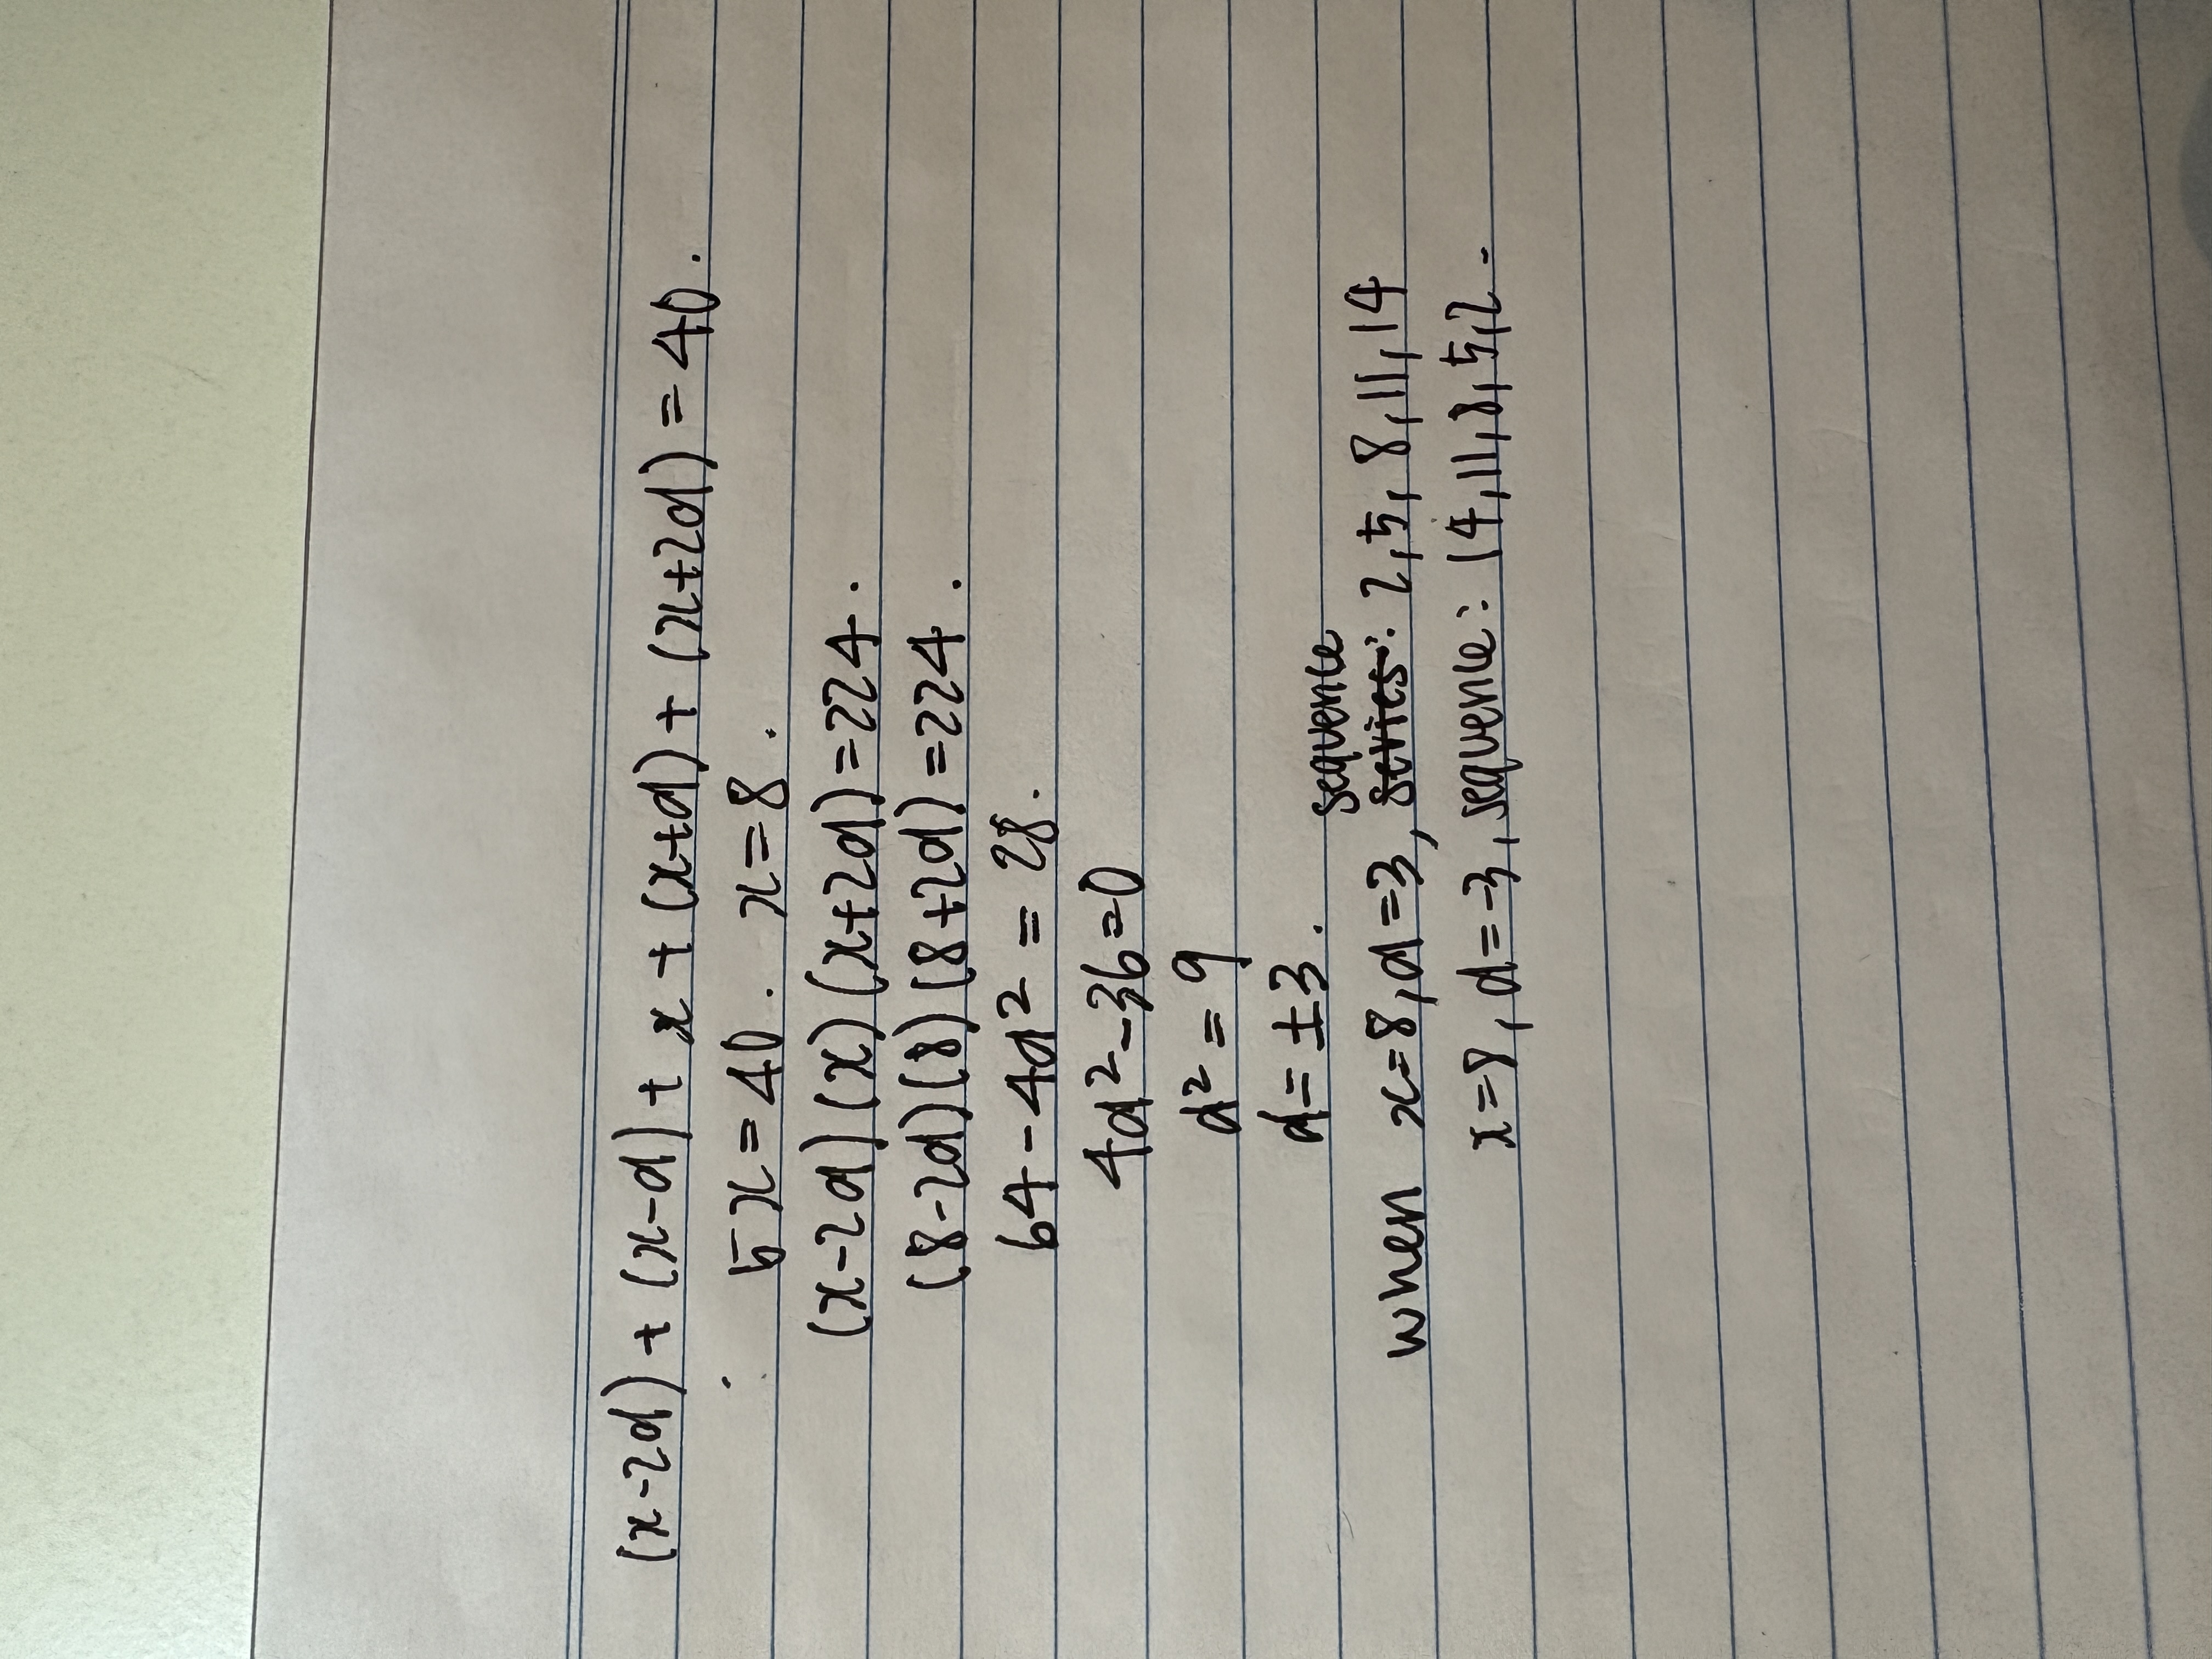 (x-2d) + (x-d) + x + (x+d) + (x+2d) = 40.
5x = 40. x = 8.
(x-2d)(x)(x+2d)=224.
(8-2d)(8)(8+2d)=224.
64-4d² = 28.
4d²-36=0
d² = 9
d= ±3.
sequence
when x=8, d=3, series: 2, 5, 8, 11, 14
x=8, d=-3, sequence: 14, 11, 8, 5, 2.